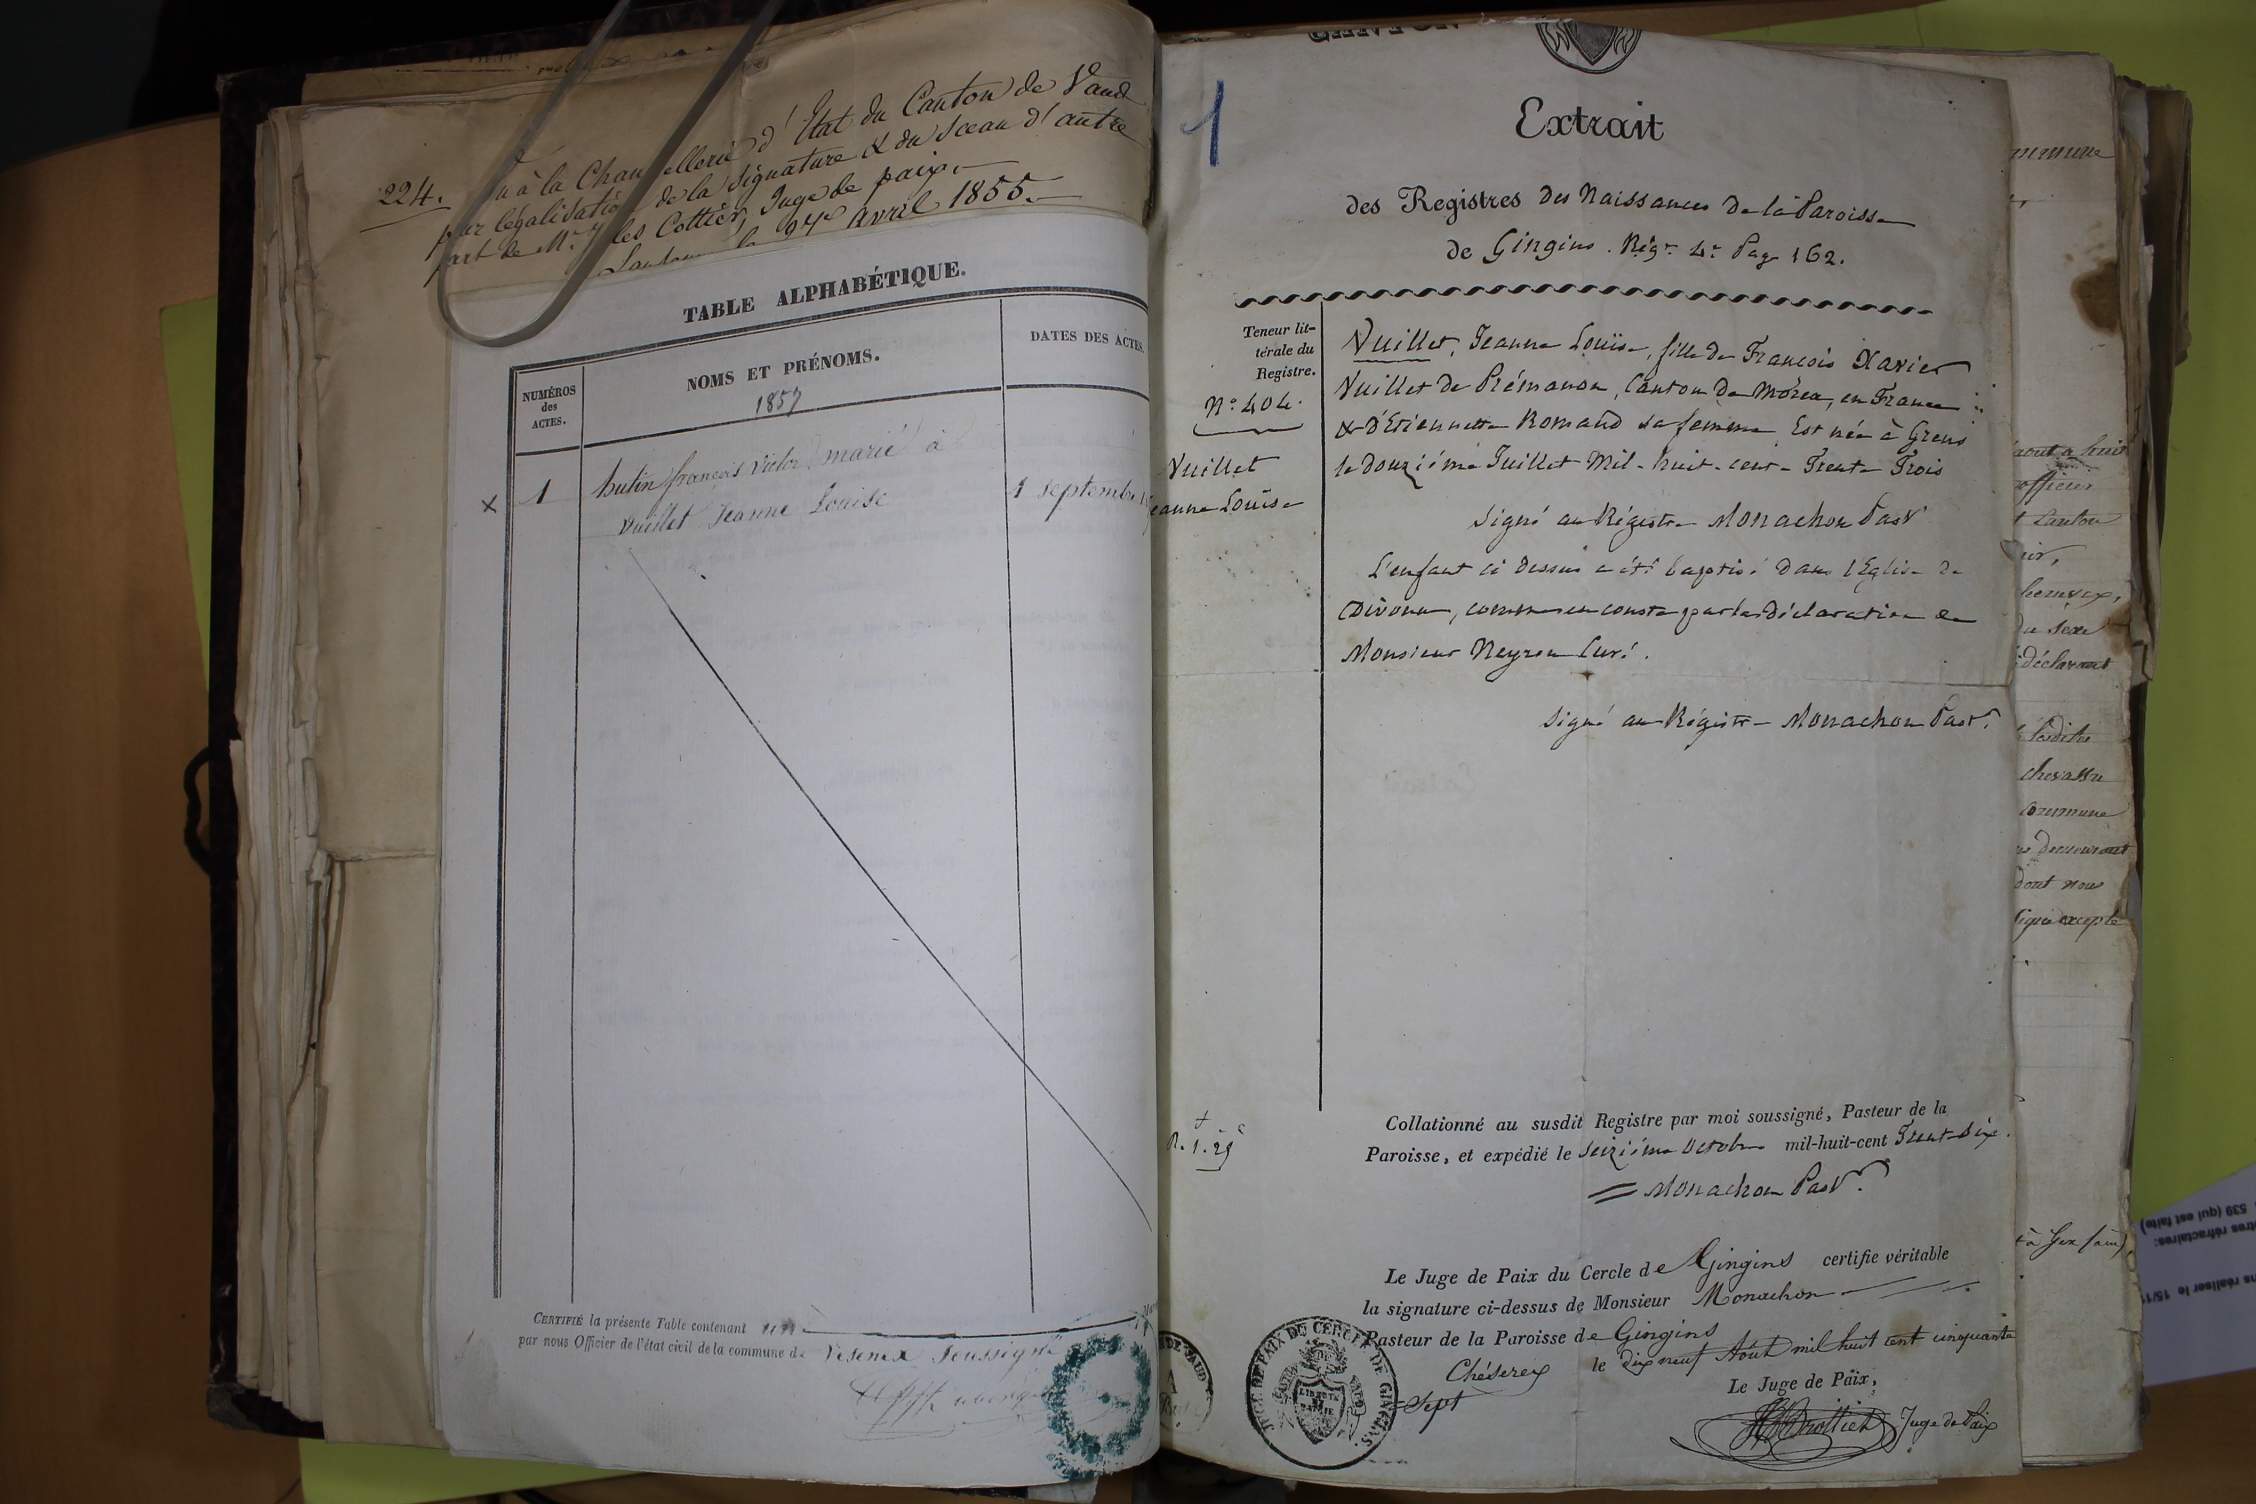 224. Vu à la Chancellerie d'État du Canton de Vaud
pour légalisation de la signature & du sceau d'autre
part de Mr. Jules Cottier, Juge de paix.
Lausanne le 27 avril 1855.
TABLE ALPHABÉTIQUE.
NUMÉROS
des
ACTES.
NOMS ET PRÉNOMS.
1857
DATES DES ACTES.
x 1 hutin françois Victor marié à
Vuillet Jeanne Louise
1 septembre
CERTIFIÉ la présente Table contenant
par nous Officier de l'état civil de la commune de Vesenex soussigné
1
Extrait
des Registres des Naissances de la Paroisse
de Gingins. Régr. 4e Page 162.
Teneur lit-
térale du
Registre.
No. 404.
Vuillet
Jeanne Louïse
Vuillet, Jeanne Louïse, fille de François Xavier
Vuillet de Prémanon, Canton de Morez, en France
& d'Etiennette Romand sa femme Est née à Grens
le douzième Juillet Mil-huit-cent-Trente Trois
Signé au Régistre Monachon Pastr
L'enfant ci dessus a été baptisé dans l'Eglise de
Divonne, comme en conste par la déclaration de
Monsieur Neyron Curé.
Signé au Régistre Monachon Pastr.
Collationné au susdit Registre par moi soussigné, Pasteur de la
Paroisse, et expédié le Seizième Octobre mil-huit-cent Trente Six.
Monachon Pastr.
Le Juge de Paix du Cercle de Gingins certifie véritable
la signature ci-dessus de Monsieur Monachon
Pasteur de la Paroisse de Gingins
Chéserex le dix neuf Août mil huit cent cinquante
Sept
Le Juge de Paix,
Juge de Paix
JUGE DE PAIX DU CERCLE DE GINGINS.
LIBERTÉ
ET
PATRIE
commune
Canton
du sexe
déclarant
lesdites
chevassu
commune
demeurant
dont nous
excepté